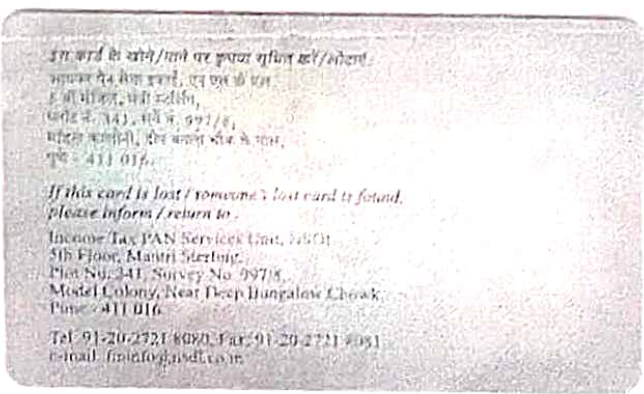 इस कार्ड के खोने/पाने पर कृपया सूचित करें/लौटाएं
आयकर पैन सेवा इकाई, एन एस डी एल
मंजिल, मंत्री स्टर्लिंग,
प्लॉट नं. 341, सर्वे नं. 997/8,
मॉडल कालोनी, दीप बंगला चौक के पास,
पुणे - 411 016.
If this card is lost / someone's lost card is found,
please inform / return to :
Income Tax PAN Services Unit, NSDL
5th Floor, Mantri Sterling,
Plot No. 341, Survey No. 997/8,
Model Colony, Near Deep Bungalow Chowk,
Pune - 411 016.
Tel: 91-20-2721 8080, Fax: 91-20-2721 8081
e-mail: tininfo@nsdl.co.in